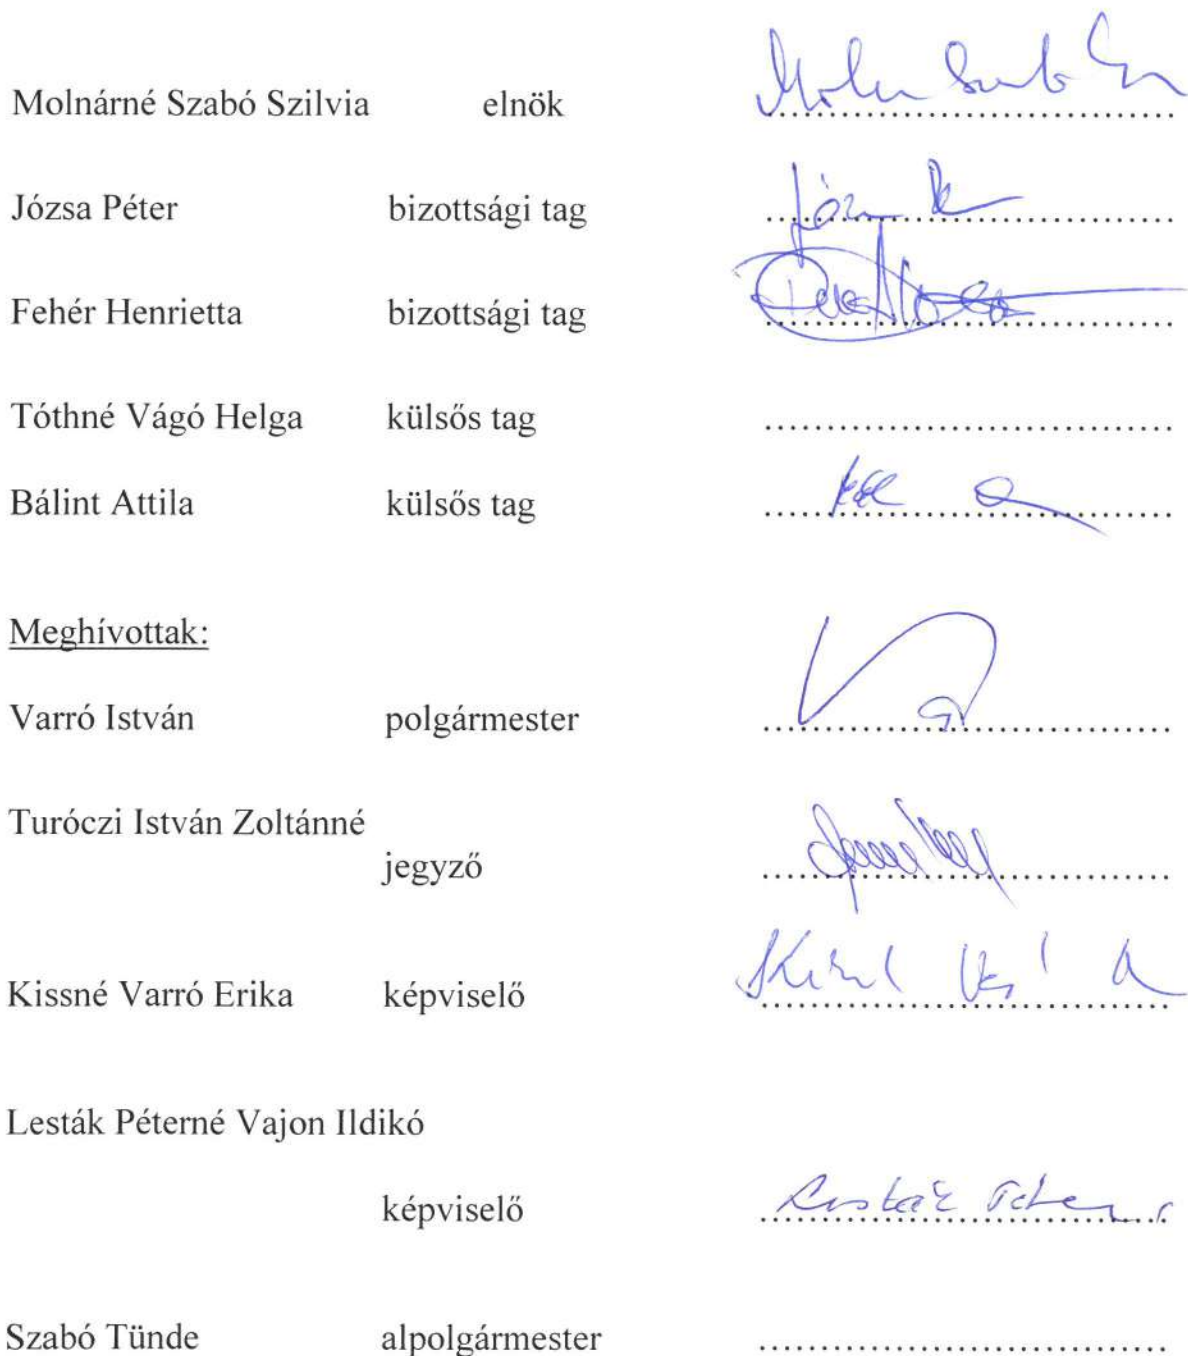 Molnárné Szabó Szilvia elnök
Józsa Péter bizottsági tag
Fehér Henrietta bizottsági tag
Tóthné Vágó Helga külsős tag ........................................
Bálint Attila külsős tag
Meghívottak:
Varró István polgármester
Turóczi István Zoltánné
jegyző
Kissné Varró Erika képviselő
Lesták Péterné Vajon Ildikó
képviselő
Szabó Tünde alpolgármester ........................................